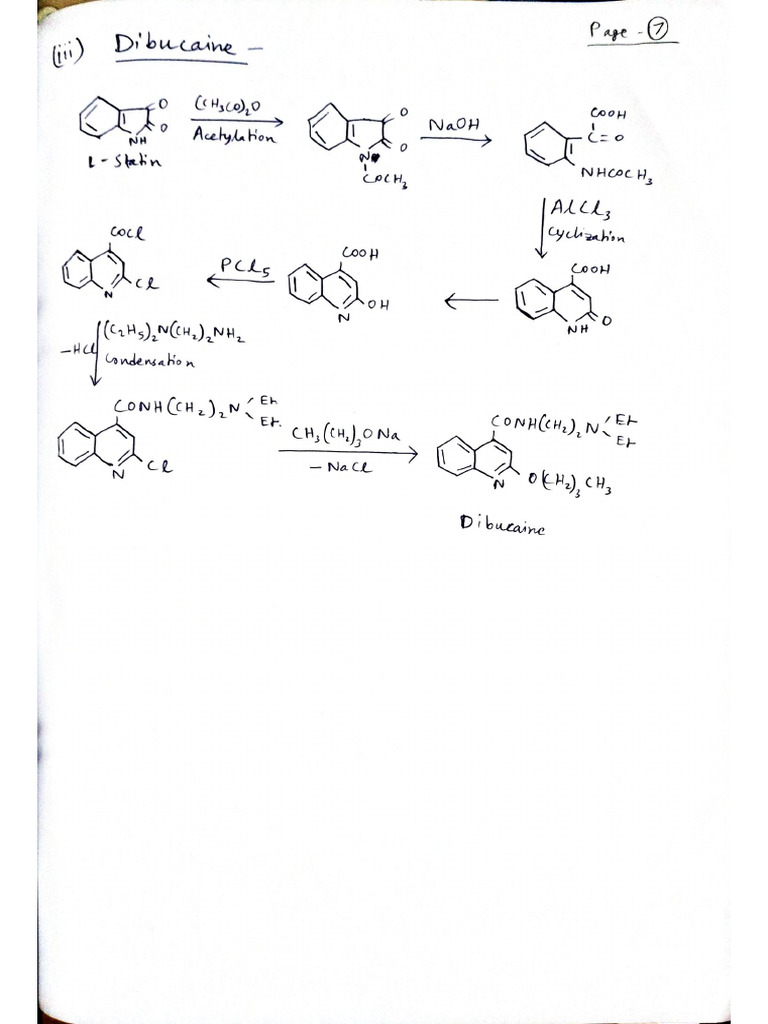 Page - 7
(iii) Dibucaine -
O
O
NH
(CH3CO)2O
Acetylation
O
O
N
COCH3
NaOH
COOH
C=O
NHCOCH3
AlCl3
Cyclization
COOH
NH
O
COOH
OH
N
PCl5
COCl
Cl
N
-HCl
(C2H5)2N(CH2)2NH2
Condensation
CONH(CH2)2N
Et
Et.
Cl
N
CH3(CH2)3ONa
- NaCl
CONH(CH2)2N
Et
Et
N
O(CH2)3CH3
Dibucaine